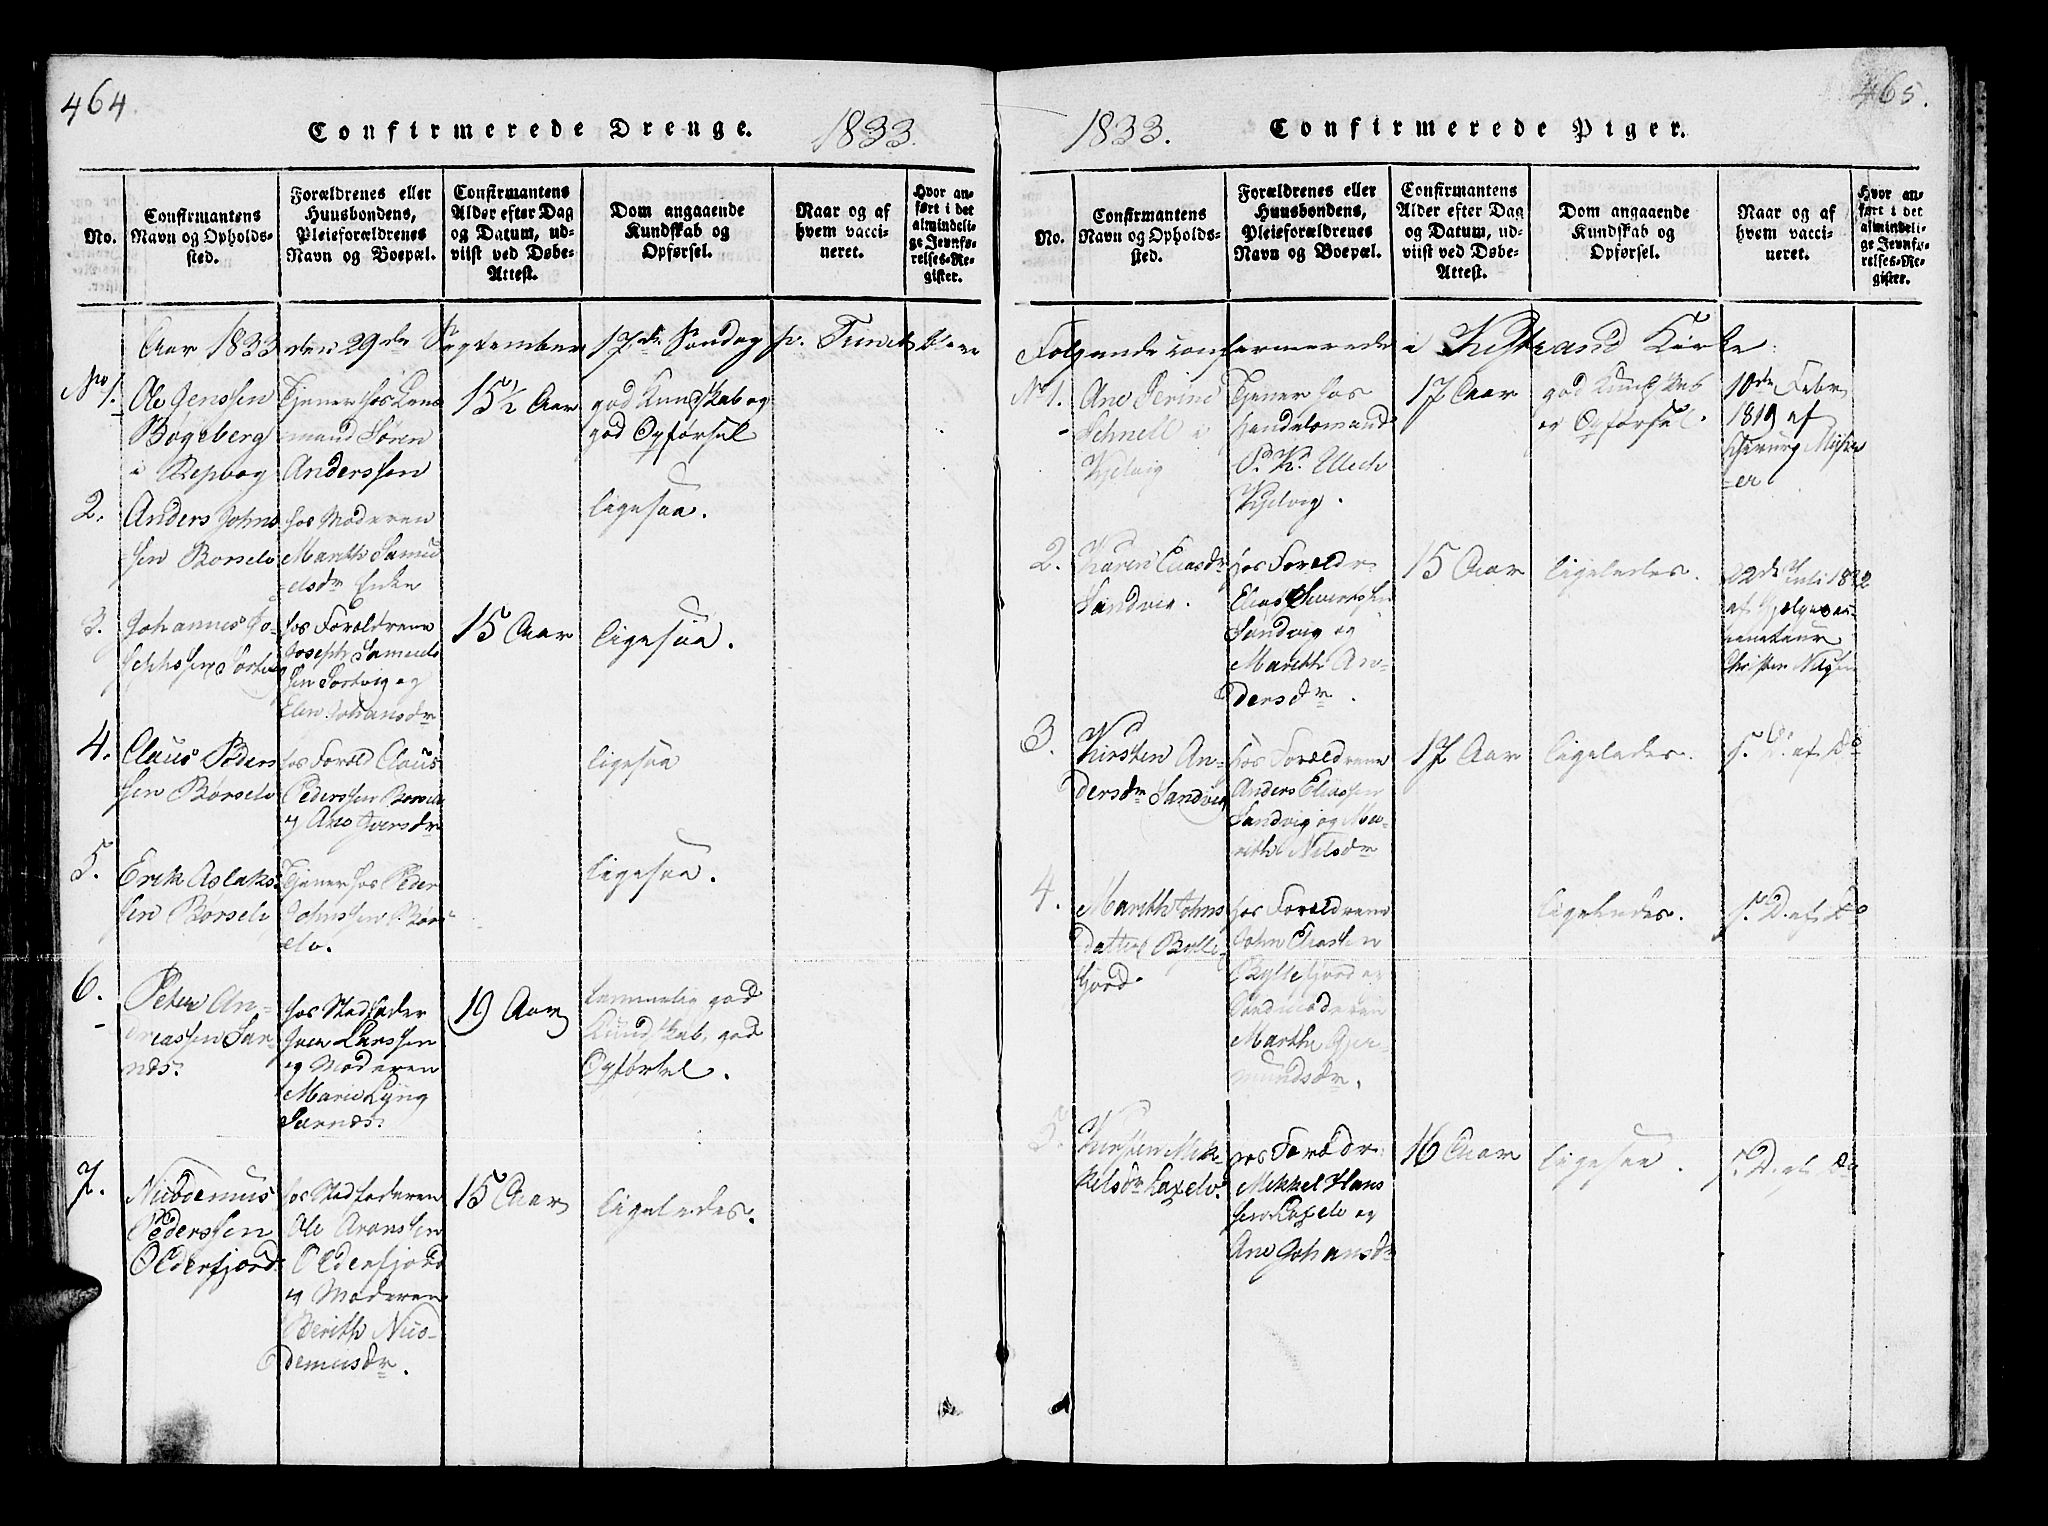 464.
Confirmerede Drenge. 1833.
No.
Confirmantens
Navn og Opholds-
sted.
Forældrenes eller
Huusbondens,
Pleieforældrenes
Navn og Boepæl.
Confirmantens
Alder efter Dag
og Datum, ud-
viist ved Døbe-
Attest.
Dom angaaende
Kundskab og
Opførsel.
Naar og af
hvem vacci-
neret.
Hvor an-
ført i det
almindeli-
ge Jevnfø-
relses-Re-
gister.
Aar 1833 den 29de September 17de Søndag p. Trinit
No 1.
Ole Jenssen
Bogeberg
i Repvog
Tjener hos Lens
mand Søren
Anderssen
15 1/2 Aar
god Kundskab og
god Opførsel
2.
Anders Johns
sen Børselv
hos Moderen
Marith Samu
elsdr Enke
ligesaa.
3.
Johannes Jo-
sephssen Sortvig
hos Forældrene
Joseph Samuels
sen Sortvig og
Elen Johansdr
15 Aar
ligesaa.
4.
Claus Peders
sen Børselv
hos Foræld Claus
Pederssen Børselv
og Ane Iversdr
ligesaa
5.
Erik Aslaks
sen Børselv
Tjener hos Peder
Johnssen Børs
elv.
ligesaa.
6.
Peter An-
reassen Sar-
næs.
hos Stedfader
Iver Larssen
og Moderen
Marie Lyng
Sarnæs.
19 Aar
temmelig god
Kundskab, god
Opførsel.
7.
Nicodemus
Pederssen
Olderfjord.
hos Stedfaderen
Ole Aronssen
Olderfjord
og Moderen
Berith Nico-
demusdr.
15 Aar
ligeledes.
465.
1833. Confirmerede Piger.
No.
Confirmantens
Navn og Opholds-
sted.
Forældrenes eller
Huusbondens,
Pleieforældrenes
Navn og Boepæl.
Confirmantens
Alder efter Dag
og Datum, ud-
viist ved Døbe-
Attest.
Dom angaaende
Kundskab og
Opførsel.
Naar og af
hvem vacci-
neret.
Hvor an-
ført i det
almindeli-
ge Jevnfø-
relses-Re-
gister.
Følgende confirmerede i Kistrand Kirke:
No 1.
Ane Serine
Schnell i
Kjelvig
Tjener hos
Handelsmand
P. K. Ulich
Kjelvig.
17 Aar
god Kundskab
og Opførsel.
10de Febr
1819 af
2.
Karen Eliasdr
Sandvig.
hos Forældr
Elias Sivertssen
Sandvig og
Marith An-
dersdr.
15 Aar
ligeledes.
22de Juli 1822
af Hjelpevac-
cinateur
Christen Nilssen
3.
Kirsten An-
dersdr Sandvig
hos Forældrene
Anders Eliassen
Sandvig og Ma-
rith Nilsdr
17 Aar
ligeledes.
s. D. af Do
4.
Marith Johns
datter Bylle
fjord.
hos Forældrene
John Eliassen
Byllefjord og
Marthe Gjer-
mundsdr.
ligeledes.
s. D. af Do
5.
Kirsten Mik-
kelsdr Laxelv.
hos Forældr.
Mikkel Hans
sen Laxelv og
Ane Johansdr
16 Aar
ligesaa.
s. D. af Do